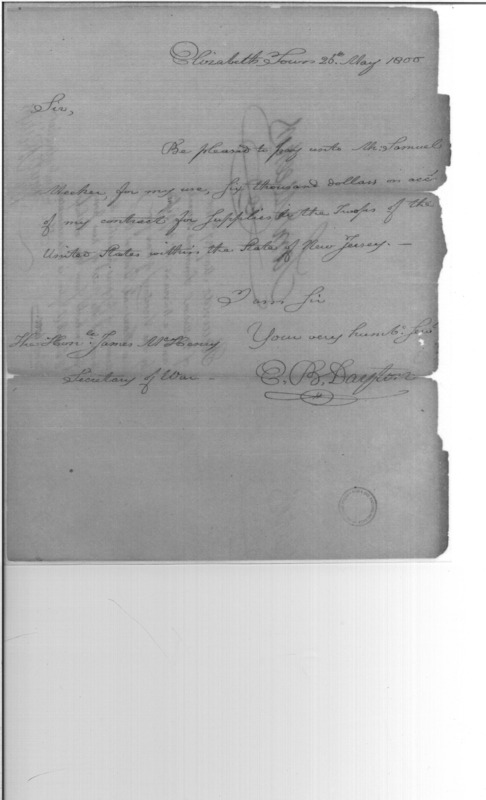 Elizabeth Town 26th May 1800
Sir,
Be pleased to pay unto Mr Samuel
Meeker, for my use, six thousand dollars in acct
of my contract for supplies to the Troops of the
United States within the State of New Jersey. —
I am Sir
Your very humbe. Servt
The Honble. James McHenry
Secretary of War —
E. B. Dayton